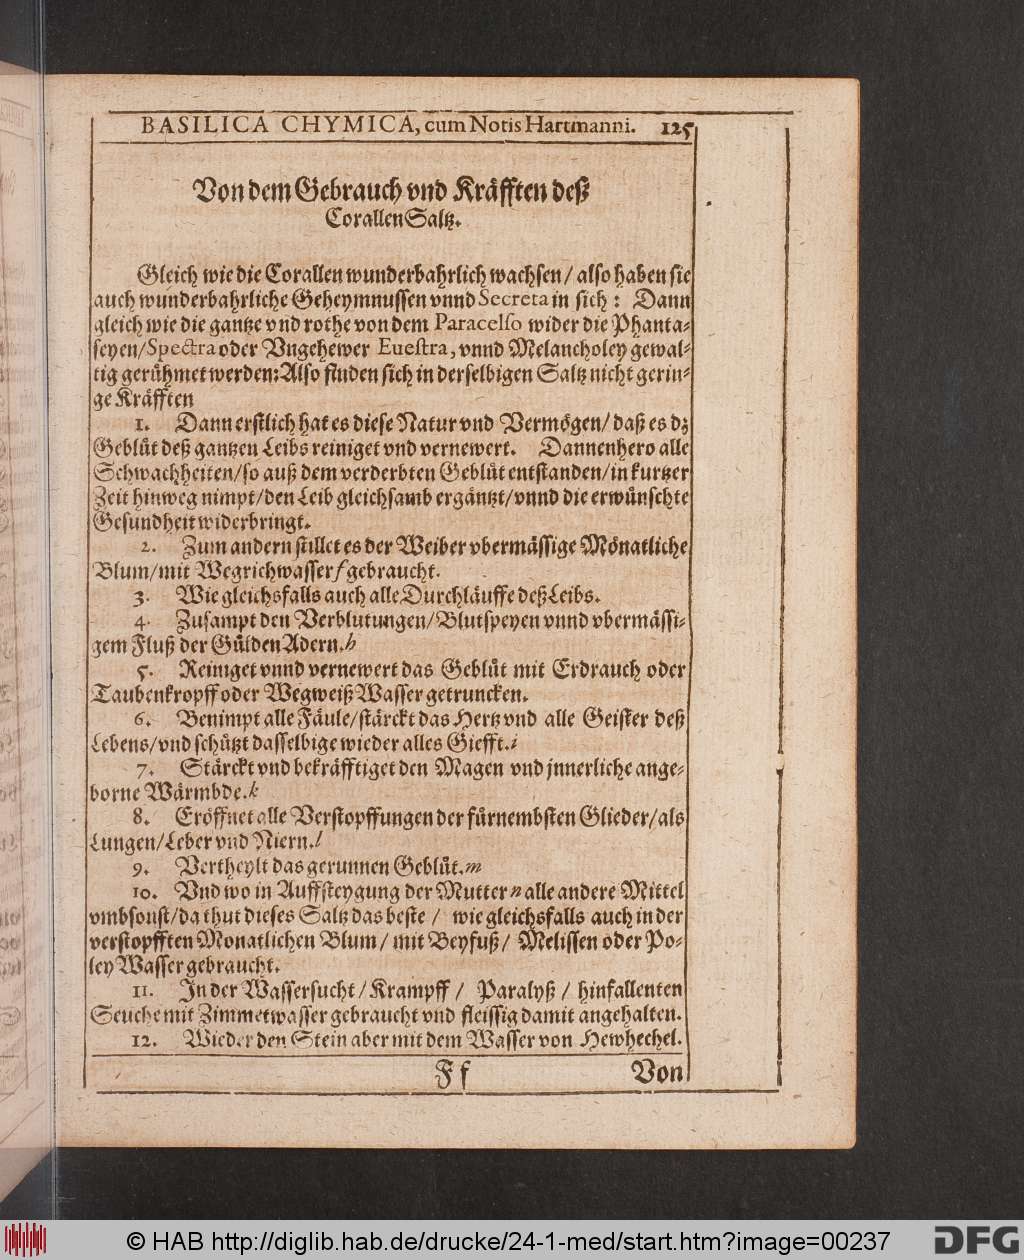 BASILICA CHYMICA, cum Notis Hartmanni. 125
Von dem Gebrauch vnd Kräfften deß
Corallen Saltz.
Gleich wie die Corallen wunderbahrlich wachsen / also haben sie
auch wunderbahrliche Geheymnussen vnnd Secreta in sich : Dann
gleich wie die gantze vnd rothe von dem Paracelso wider die Phanta-
seyen/Spectra oder Vngehewer Euestra, vnnd Melancholey gewal-
tig gerühmet werden: Also finden sich in derselbigen Saltz nicht gerin-
ge Kräfften
1. Dann erstlich hat es diese Natur vnd Vermögen/ daß es dz
Geblüt deß gantzen Leibs reiniget vnd vernewert. Dannenhero alle
Schwachheiten/so auß dem verderbten Geblüt entstanden/in kurtzer
Zeit hinweg nimpt/den Leib gleichsamb ergäntzt/vnnd die erwünschte
Gesundheit widerbringt.
2. Zum andern stillet es der Weiber vbermässige Mönatliche
Blum/mit Wegrichwasser f gebraucht.
3. Wie gleichsfalls auch alle Durchläuffe deß Leibs.
4. Zusampt den Verblutungen/Blutspeyen vnnd vbermässi-
gem Fluß der Gülden Adern.h
5. Reiniget vnnd vernewert das Geblüt mit Erdrauch oder
Taubenkropff oder Wegweiß Wasser getruncken.
6. Benimpt alle Fäule/stärckt das Hertz vnd alle Geister deß
Lebens/vnd schützt dasselbige wieder alles Giefft.i
7. Stärckt vnd bekräfftiget den Magen vnd jnnerliche ange-
borne Wärmbde.k
8. Eröffnet alle Verstopffungen der fürnembsten Glieder/als
Lungen/Leber vnd Niern.l
9. Vertheylt das gerunnen Geblüt.m
10. Vnd wo in Auffsteygung der Mutter n alle andere Mittel
vmbsonst/da thut dieses Saltz das beste / wie gleichsfalls auch in der
verstopfften Monatlichen Blum / mit Beyfuß / Melissen oder Po-
ley Wasser gebraucht.
11. In der Wassersucht / Krampff / Paralyß / hinfallenten
Seuche mit Zimmetwasser gebraucht vnd fleissig damit angehalten.
12. Wieder den Stein aber mit dem Wasser von Hewhechel.
F f Von
© HAB http://diglib.hab.de/drucke/24-1-med/start.htm?image=00237
DFG